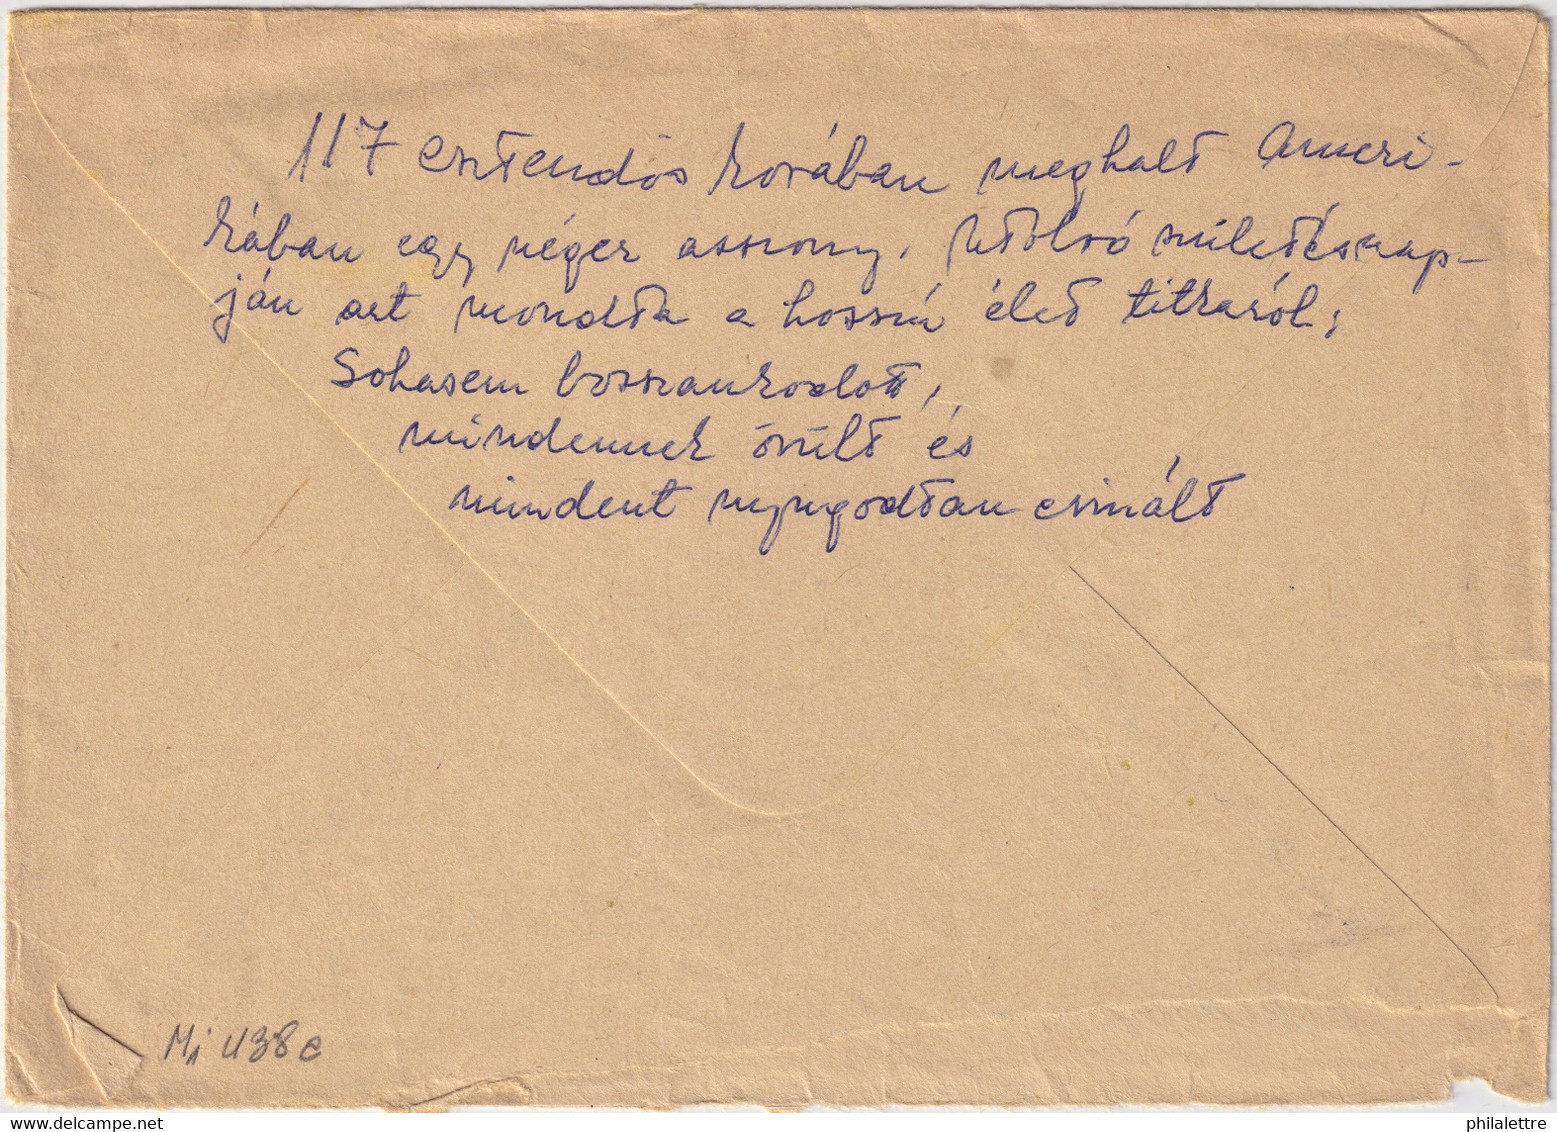 117 esztendős korában meghalt Ameri-
kában egy néger asszony, utolsó születésnap-
ján azt mondta a hosszú élet titkáról:
Sohasem bosszankodott,
mindennek örült és
mindent nyugodtan csinált
Mi 438 c
philalettre